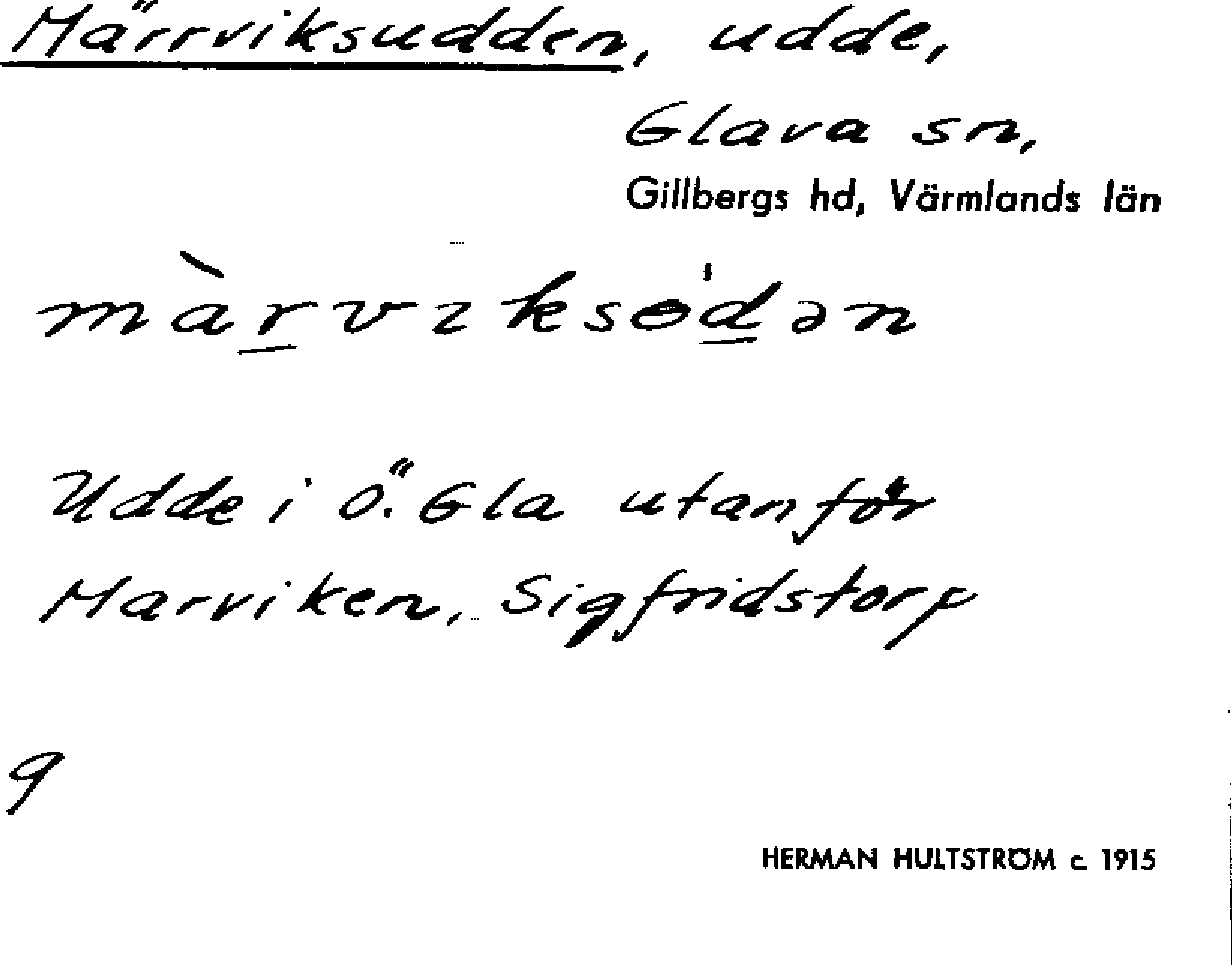 Märrviksudden, udde,
Glava sn,
Gillbergs hd, Värmlands län
màr̲vıksɵ'd̲ən
Udde i Ö. Gla utanför
Marviken, Sigfridstorp
9
HERMAN HULTSTRÖM c 1915